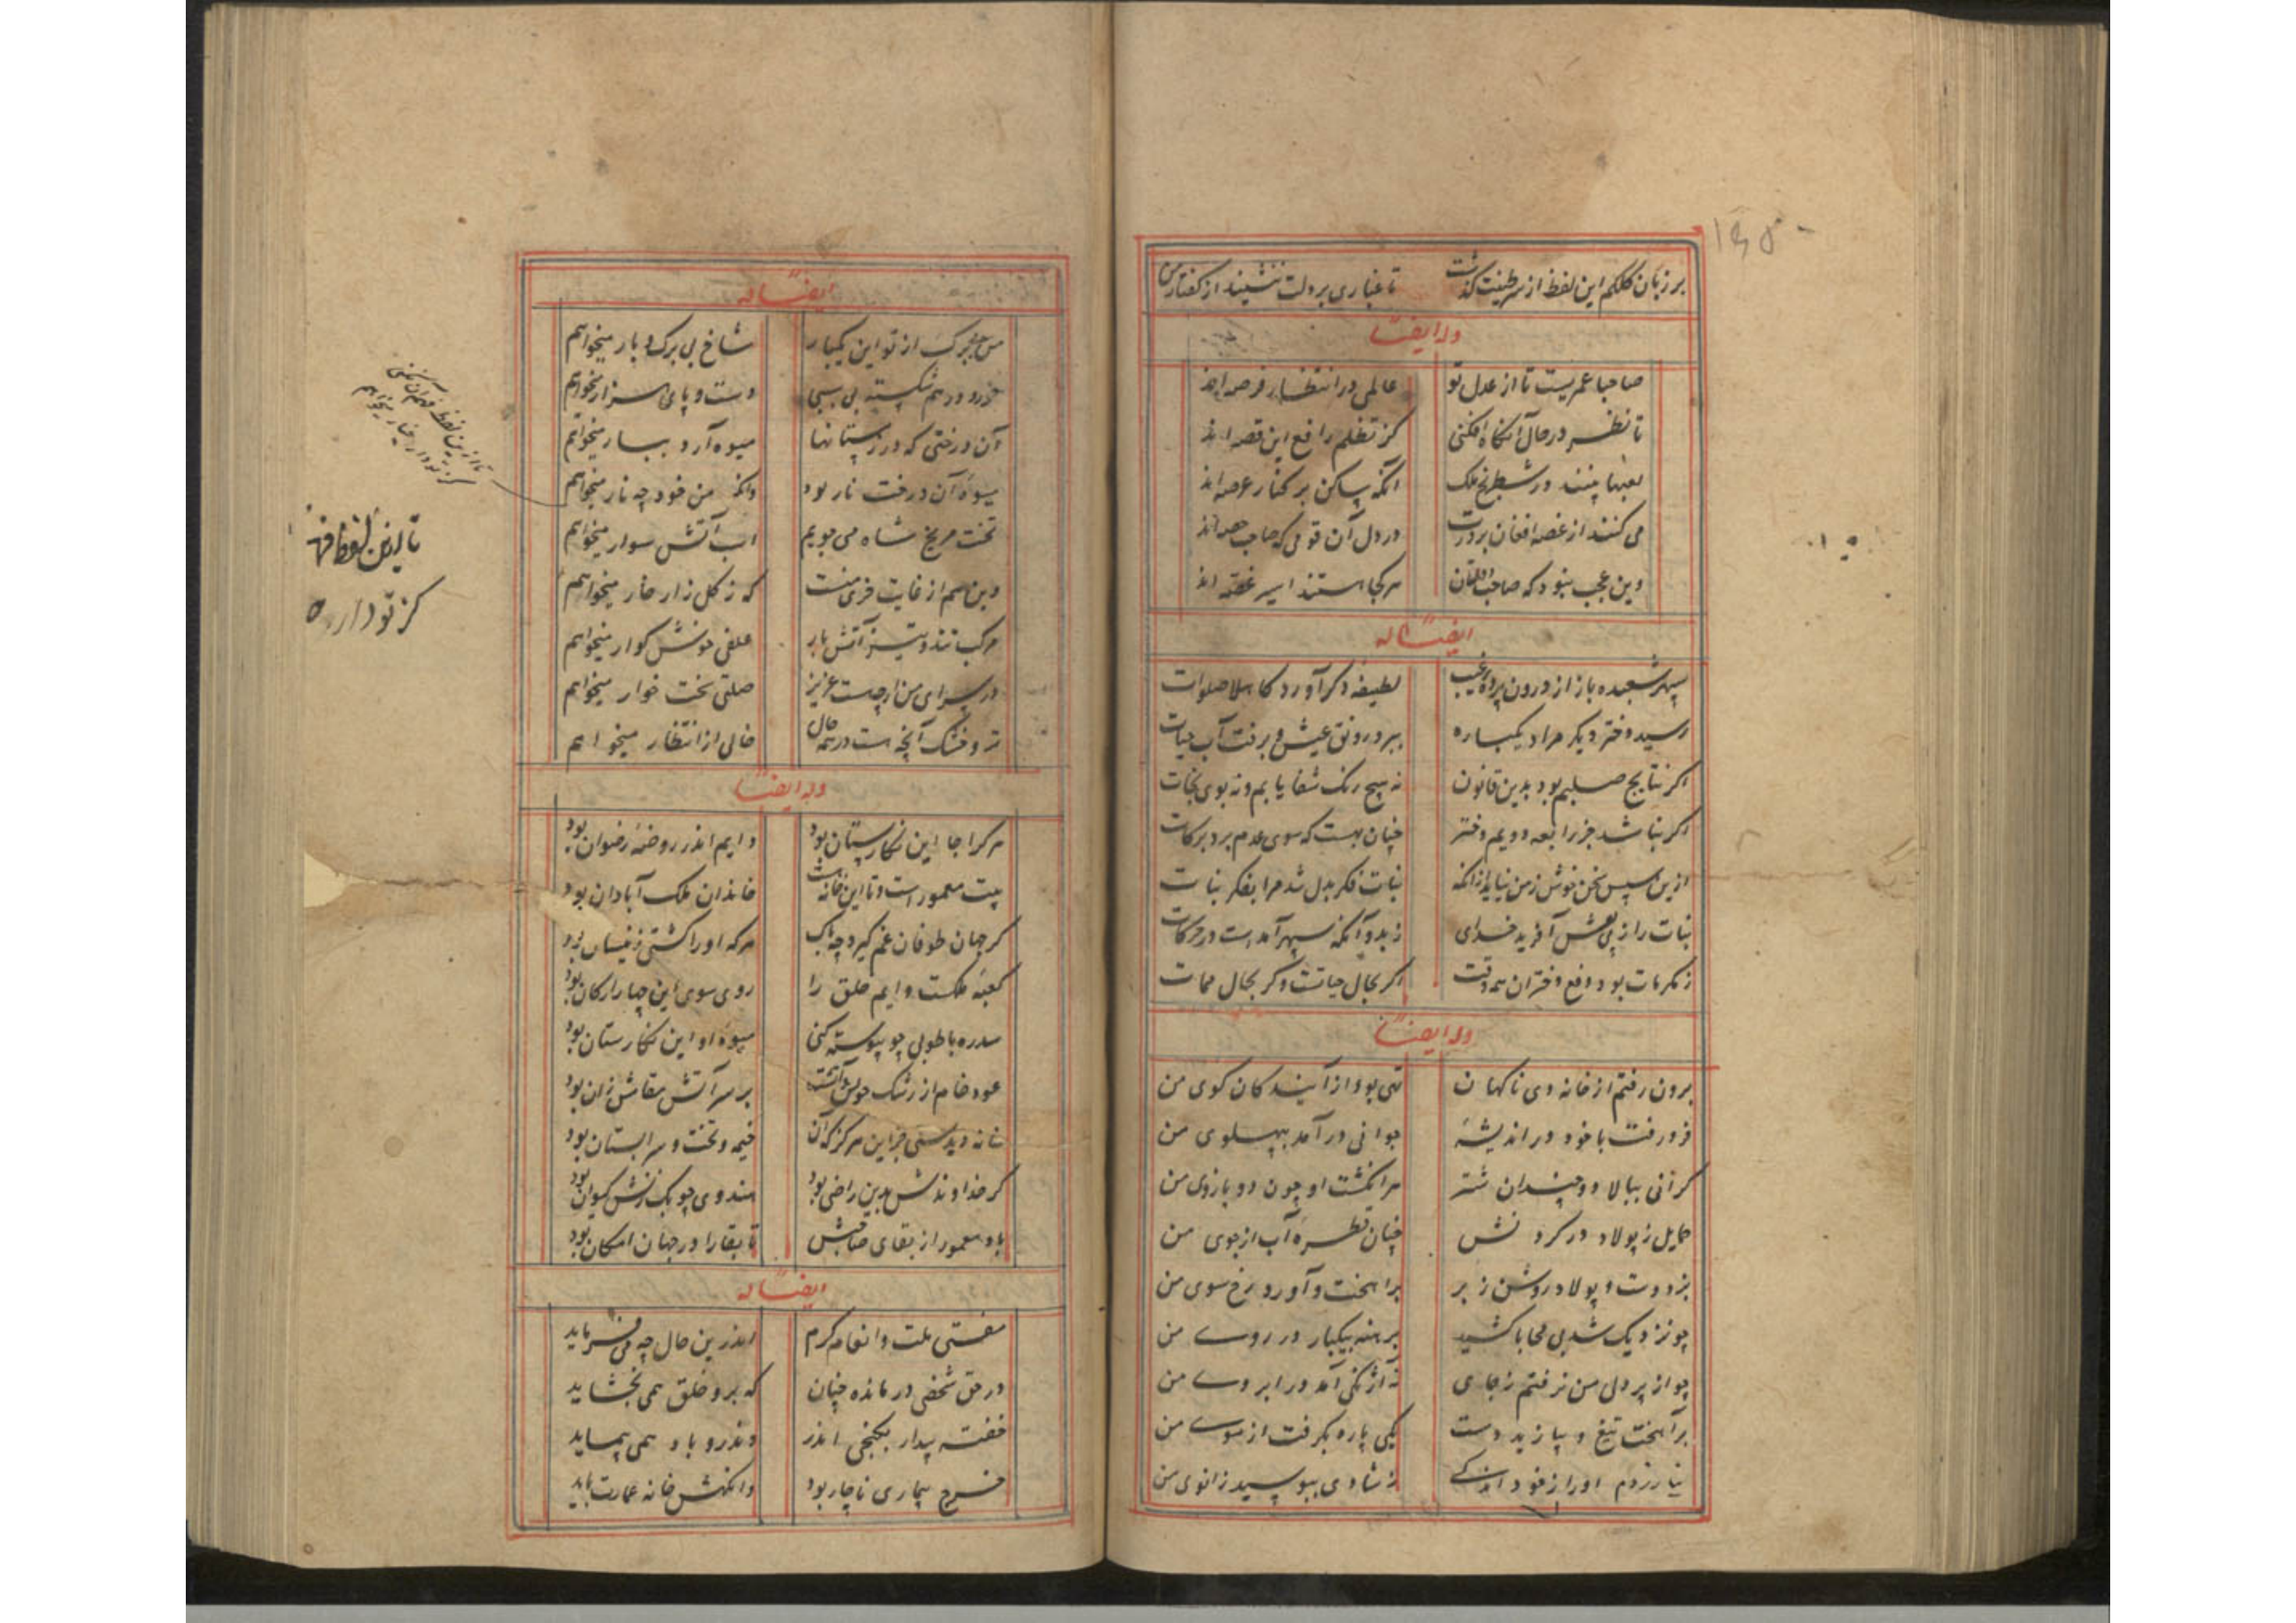 بر زبان کلکم این لفظ از سر طیبت گذشت تا غباری بر دلت ننشیند از گفتار من
وله ایضاً
صاحبا عمریست تا از عدل تو عالمی در انتظار فرصه اند
تا نظر در حال آنگاه افکنی کز تظلم رافع این قصه اند
لعبها بینند در شطرنج ملک آنکه ساکن بر کنار عرصه اند
می کنند از غصه افغان بر درت در دل آن قومی که صاحب حصه اند
وین عجب نبود که صاحب هر کجا هستند اسیر غصه اند
ایضاً له
سپهر شعبده باز از درون پرده غیب لطیفه دگر آورد کاهلا صلوات
رسید دختر دیگر مرا و یکباره ببرد رونق عیش و برفت آب حیات
اگر نتایج صلبم بود بدین قانون نه هیچ رنگ شفا یابم و نه بوی نجات
اگر بنا شد جز رابعه دویم دختر چنان بهست که سوی عدم برد برکات
ازین سپس سخن خوش ز من نیاید زانکه بنات فکر بدل شد مرا بفکر بنات
بنات را ز پی نعش آفرید خدای ز بدو آنکه سپهر آمدست در حرکات
ز مکرمات بود دفع دختران همه وقت اگر بحال حیاتست و گر بحال ممات
وله ایضاً
برون رفتم از خانه دی ناگهان تهی بود از آیندگان کوی من
فرو رفت با خود در اندیشهٔ جوانی در آمد بپهلوی من
گرانی ببالا دو چندان شتر هر انگشت او چون دو بازوی من
حمایل ز پولاد در گردنش چنان قطره آب از جوی من
بزد دست و پولاد روشن ز بر برآهخت و آورد رخ سوی من
چو نزدیک شد بی محابا کشید برهنه بیکبار در روی من
چو از پر دلی من نرفتم ز جای نه از کژی آمد در ابروی من
برآهخت تیغ و بیازید دست یکی پاره بگرفت از موی من
نیازردم او را ز خود اندکی ز شادی ببوسید زانوی من
ایضاً له
من بی برگ از تو این یکبار شاخ بی برگ و بار میخواهم
خرد و درهم شکسته بی سببی دست و پای سزار میخواهم
آن درختی که در زمستانها میوه آرد ببار میخواهم
میوه آن درخت نار بود وانکه من خود چه نار میخواهم
تخت مریخ شاه می جویم اسب آتش سوار میخواهم
وین هم از غایت خری منست که ز گلزار خار میخواهم
مرکب تند و تیز آتش بار علفی خوش گوار میخواهم
در سرای من ارچست عزیز صلتی سخت خوار میخواهم
تر و خشک آنچه است در همه حال خالی از انتظار میخواهم
تا ازین لفظ فهم آن نکنی
کز تو دار و خیار میخواهم
تا ازین لفظ فهـ
کز تو دار
وله ایضاً
هر کرا جا این نگارستان بود دایم اندر روضه رضوان بود
بیت معمور است و تا این خانه هست خاندان ملک آبادان بود
گر جهان طوفان غم گیرد چه باک هر که او را کشتی زینسان بود
کعبه ملکست و ایم خلق را روی سوی این چهار ارکان بود
سدره با طوبی چو پیوسته کنی میوه او این نگارستان بود
عود خام از رشک چوبش بر سر آتش نفاش زان بود
خانه دیدستی جز این هرگز که آن خیمه و تخت و سرابستان بود
گر خداوندش بدین راضی بود هندوی چوبک زنش کیوان بود
باد معمور از بقای صاحبش تا بقا را در جهان امکان بود
ایضاً له
مفتی ملت و انعام کرم اندرین حال چه می فرماید
در حق شخصی درمانده چنان که برو خلق همی بخشاید
خفته بیدار بکنجی اندر وندرو باد همی پیماید
خرج بیماری ناچار بود وانگهش خانه عمارت باید